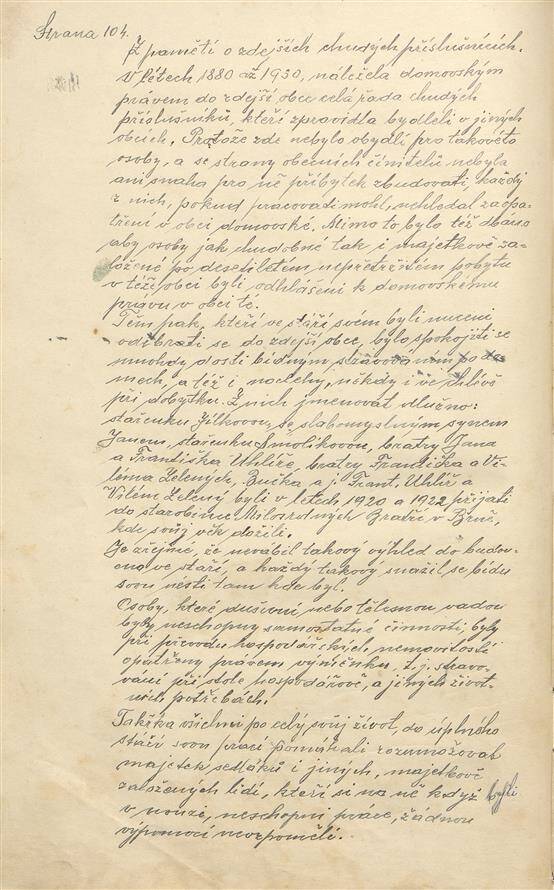 Strana 104.
Z pamětí o zdejších chudých příslušnících.
V létech 1880 až 1930, náležela domovským
právem do zdejší obce celá řada chudých
příslušníků, kteří zpravidla bydleli v jiných
obcích. Protože zde nebylo obydlí pro takovéto
osoby, a se strany obecních činitelů nebyla
ani snaha pro ně příbytek zbudovati, každý
z nich, pokud pracovati mohl, nehledal zaopa-
tření v obci domovské. Mimo to bylo též dbáno
aby osoby jak chudobné tak i majetkově za-
ložené po desetiletém nepřetržitém pobytu
v téže obci byli odhlášeni k domovskému
právu v obci té.
Těm pak, kteří ve stáří svém byli nuceni
odebrati se do zdejší obce, bylo spokojiti se
mnohdy dosti bídným stravováním po do-
mech, a též i noclehy, někdy i ve chlévě
při dobytku. Z nich jmenovat dlužno:
stařenku Jílkovou, se slabomyslným synem
Janem, stařenku Smolíkovou, bratry Jana
a Františka Uhlíře, bratry Františka a Vi-
léma Zelených, Bučka a j. Frant. Uhlíř a
Vilém Zelený byli v letech 1920 a 1922 přijati
do starobince Milosrdných Bratří v Brně,
kde svůj věk dožili.
Je zřejmé, že nevábil takový výhled do budou-
cna ve stáří, a každý takový snažil se bídu
svou nésti tam kde byl.
Osoby, které duševní nebo tělesnou vadou
byly neschopny samostatné činnosti, byly
při převodu hospodářských nemovitostí
opatřeny právem výminku, t. j. stravo-
vání při stole hospodářově, a jiných život-
ních potřebách.
Takřka všichni po celý svůj život, do úplného
stáří svou prací pomáhali rozumožovat
majetek sedláků i jiných, majetkově
založených lidí, kteří si na ně když byli
v nouzi, neschopni práce, žádnou
výpomocí nevzpoměli.